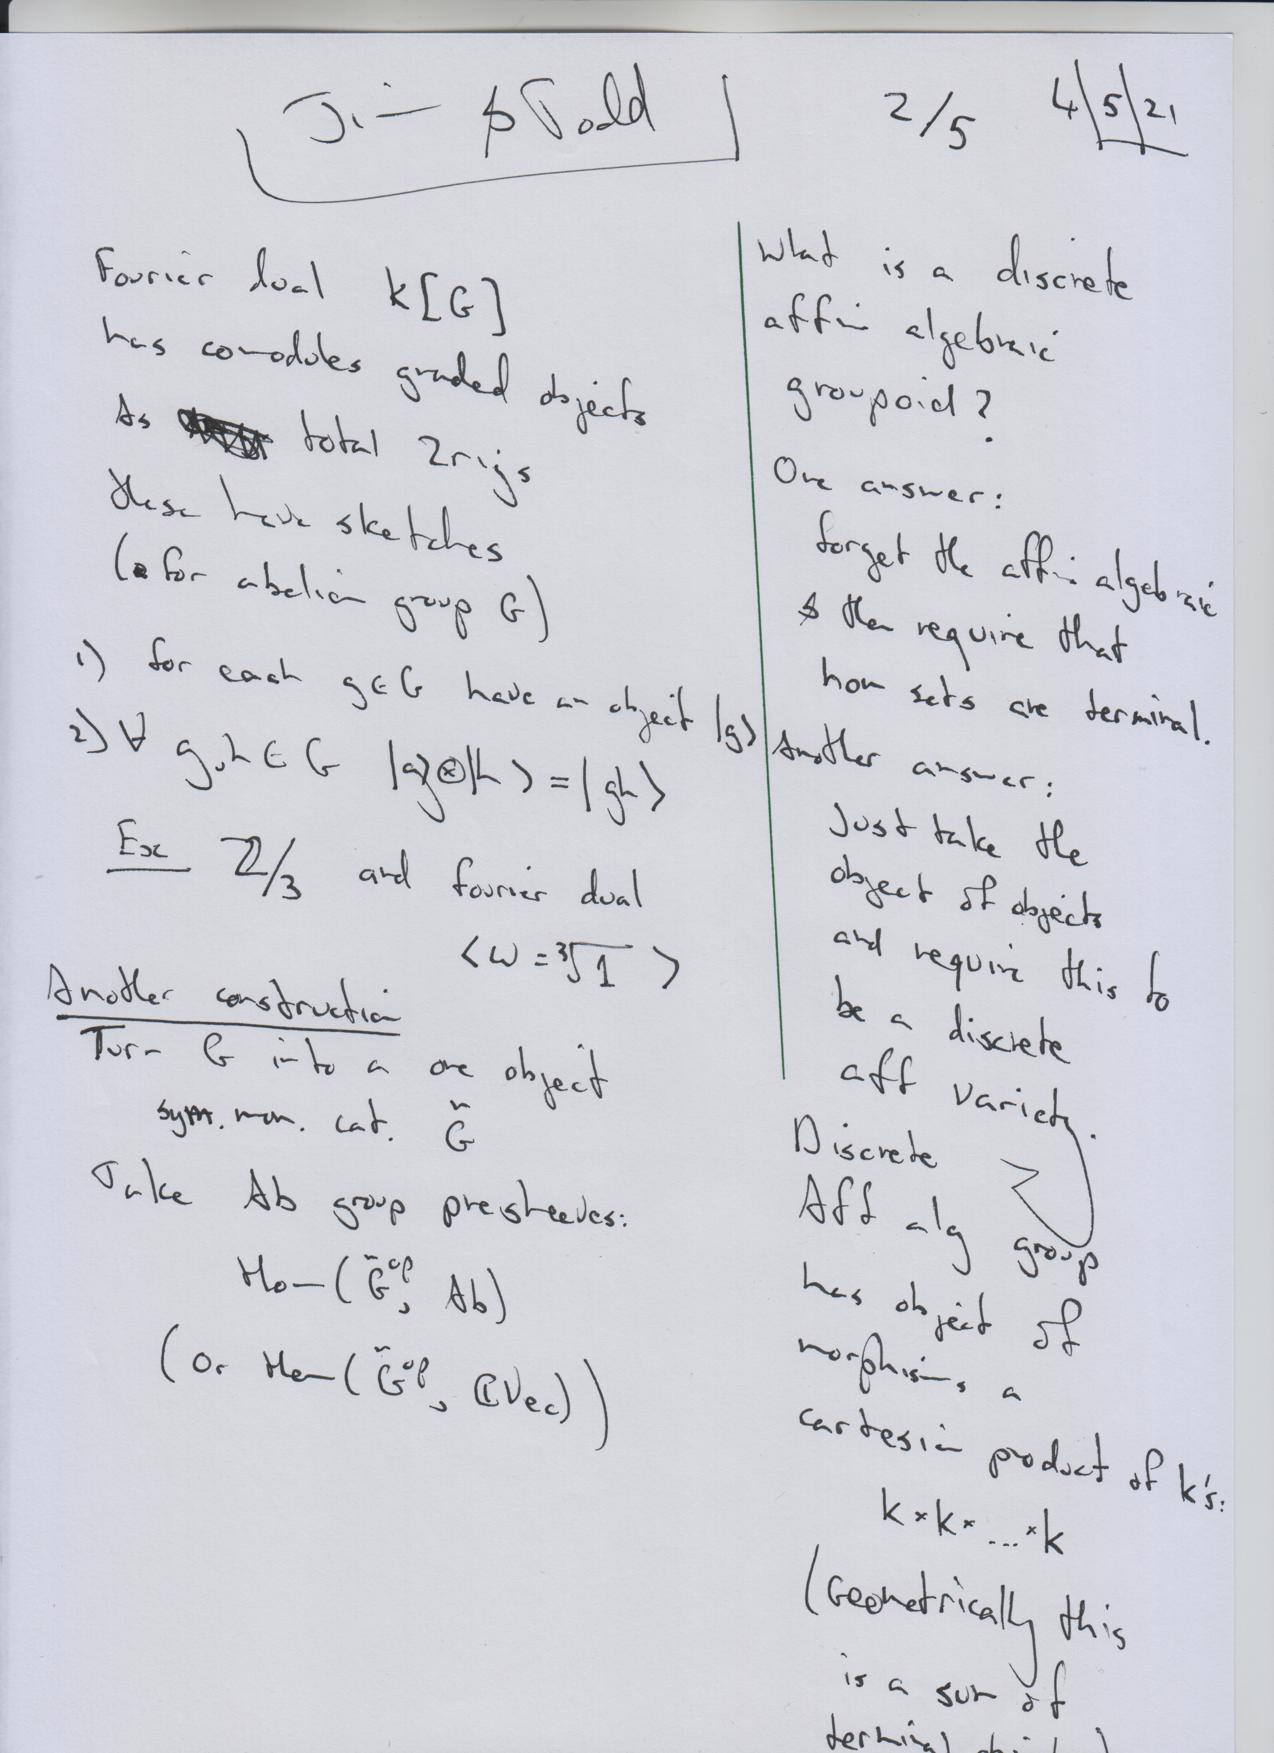 Jim & Todd
2/5
4/5/21
Fourier dual k[G]
has comodules graded objects
As total 2rigs
these have sketches
(for abelian group G)
1) for each g∈G have an object |g⟩
2) ∀ g,h ∈ G |g⟩⊗|h⟩ = |gh⟩
Ex ℤ/3 and fourier dual
⟨ω = ∛1⟩
Another construction
Turn G into a one object
sym. mon. cat. G̃
Take Ab group presheaves:
Hom(G̃^op, Ab)
(Or Hom(G̃^op, ℂVec))
What is a discrete
affin algebraic
groupoid?
One answer:
forget the affin algebraic
& then require that
hom sets are terminal.
Another answer:
Just take the
object of objects
and require this to
be a discrete
aff variety.
Discrete
Aff alg group
has object of
morphisms a
cartesian product of k's:
k × k × ... × k
(Geometrically this
is a sum of
terminal objects)